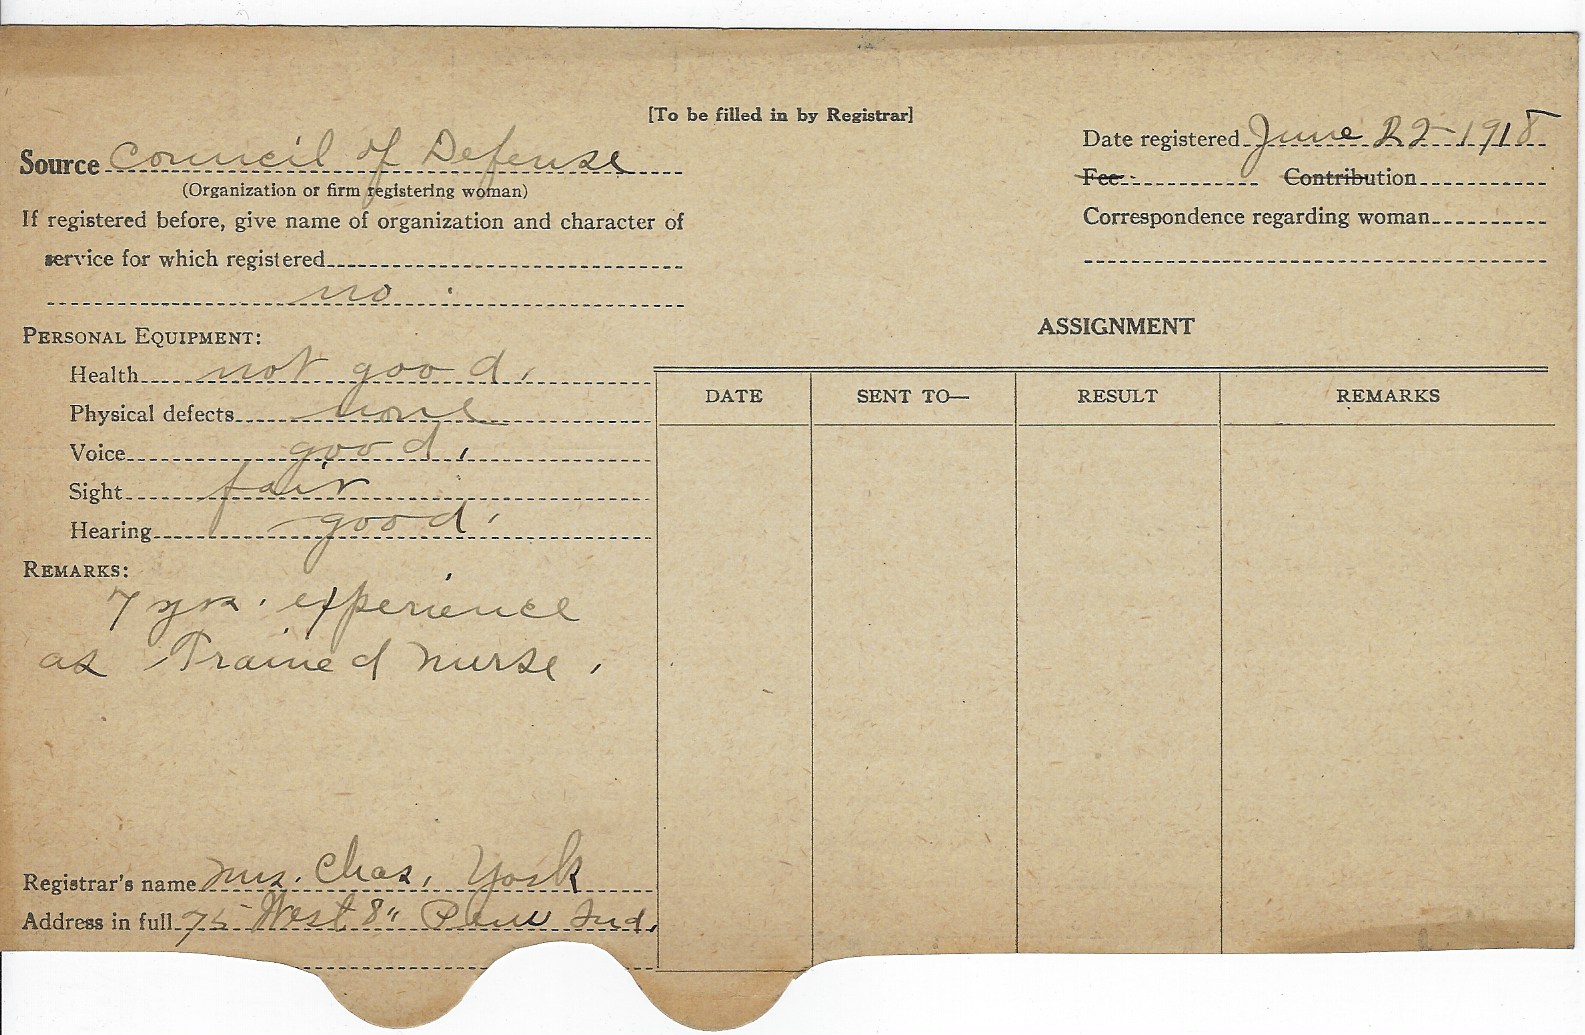 [To be filled in by Registrar]
Source Council of Defense
(Organization or firm registering woman)
If registered before, give name of organization and character of
service for which registered
no
Date registered June 22-1918
Fee Contribution
Correspondence regarding woman
PERSONAL EQUIPMENT:
Health not good.
Physical defects none
Voice good.
Sight fair
Hearing good.
REMARKS:
7 yrs. experience
as Trained nurse.
Registrar's name Mrs. Chas. York
Address in full 75 West 8" Peru Ind.
ASSIGNMENT
DATE SENT TO— RESULT REMARKS